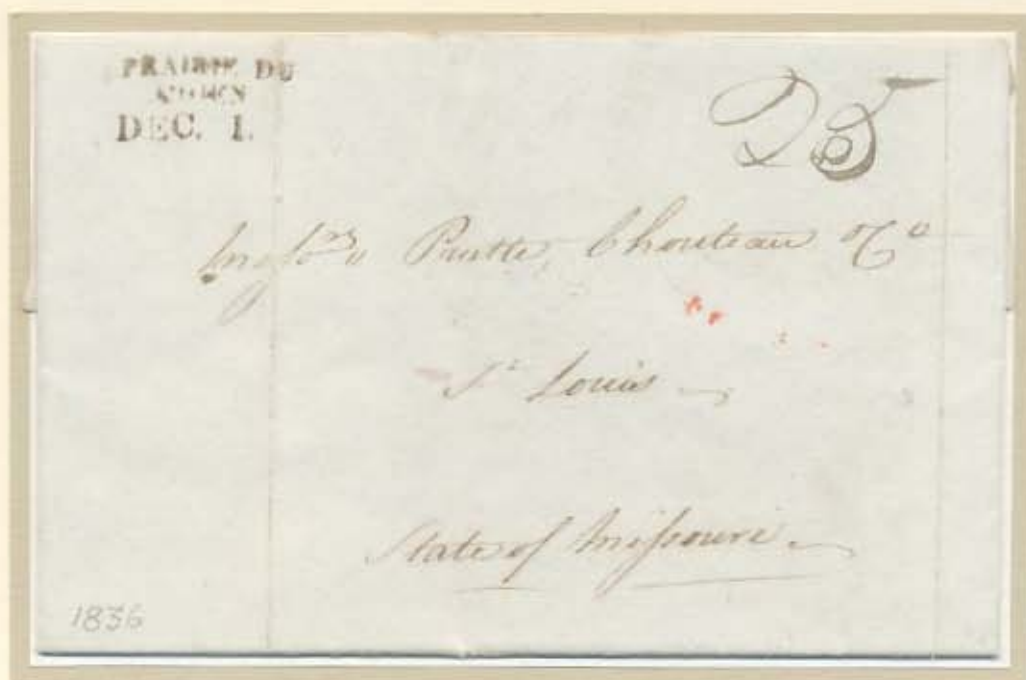 PRAIRIE DU
CHIEN
DEC. 1.
25
Mess.rs Pratte, Chouteau & Co
St Louis
State of Missouri.
1836